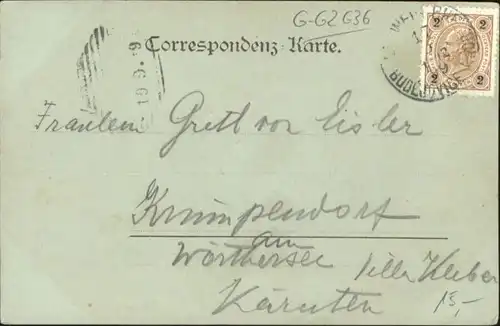 G-G2 G36
Correspondenz-Karte.
2 2
2 2
19.9.9
Fräulein Gretl von Eisler
Krumpendorf
am
Wörthersee Villa Kleber
Kärnten 15,-